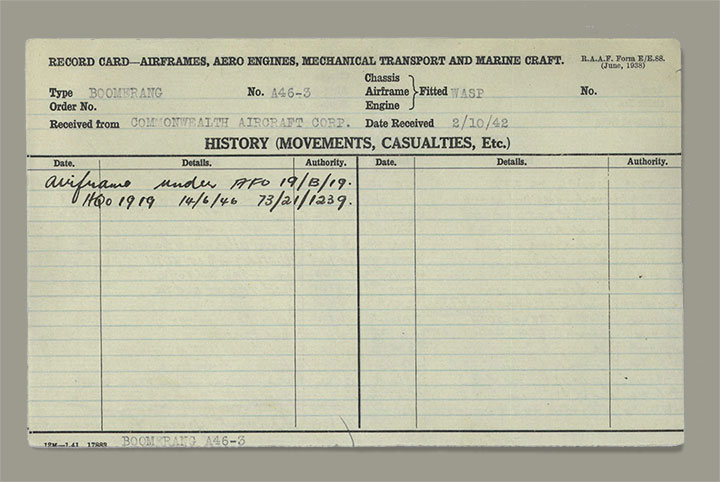 RECORD CARD—AIRFRAMES, AERO ENGINES, MECHANICAL TRANSPORT AND MARINE CRAFT.
R.A.A.F. Form E/E.88.
(June, 1938)
Type BOOMERANG No. A46-3 Chassis Airframe Engine } Fitted WASP No.
Order No.
Received from COMMONWEALTH AIRCRAFT CORP. Date Received 2/10/42
HISTORY (MOVEMENTS, CASUALTIES, Etc.)
Date. Details. Authority. Date. Details. Authority.
Airframe under AFO 19/B/19.
HQo 1919 14/6/46 73/21/1239.
12M—1.41 17883 BOOMERANG A46-3